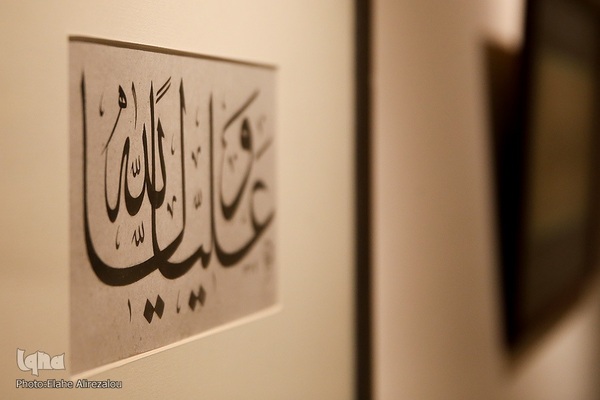 علیاً ولی الله
iqna
Photo:Elahe Alirezalou